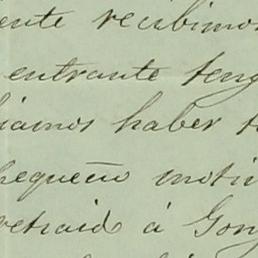 ente recibimos
entrante teng
iamos haber t
pequeño motiv
retraid á Gon